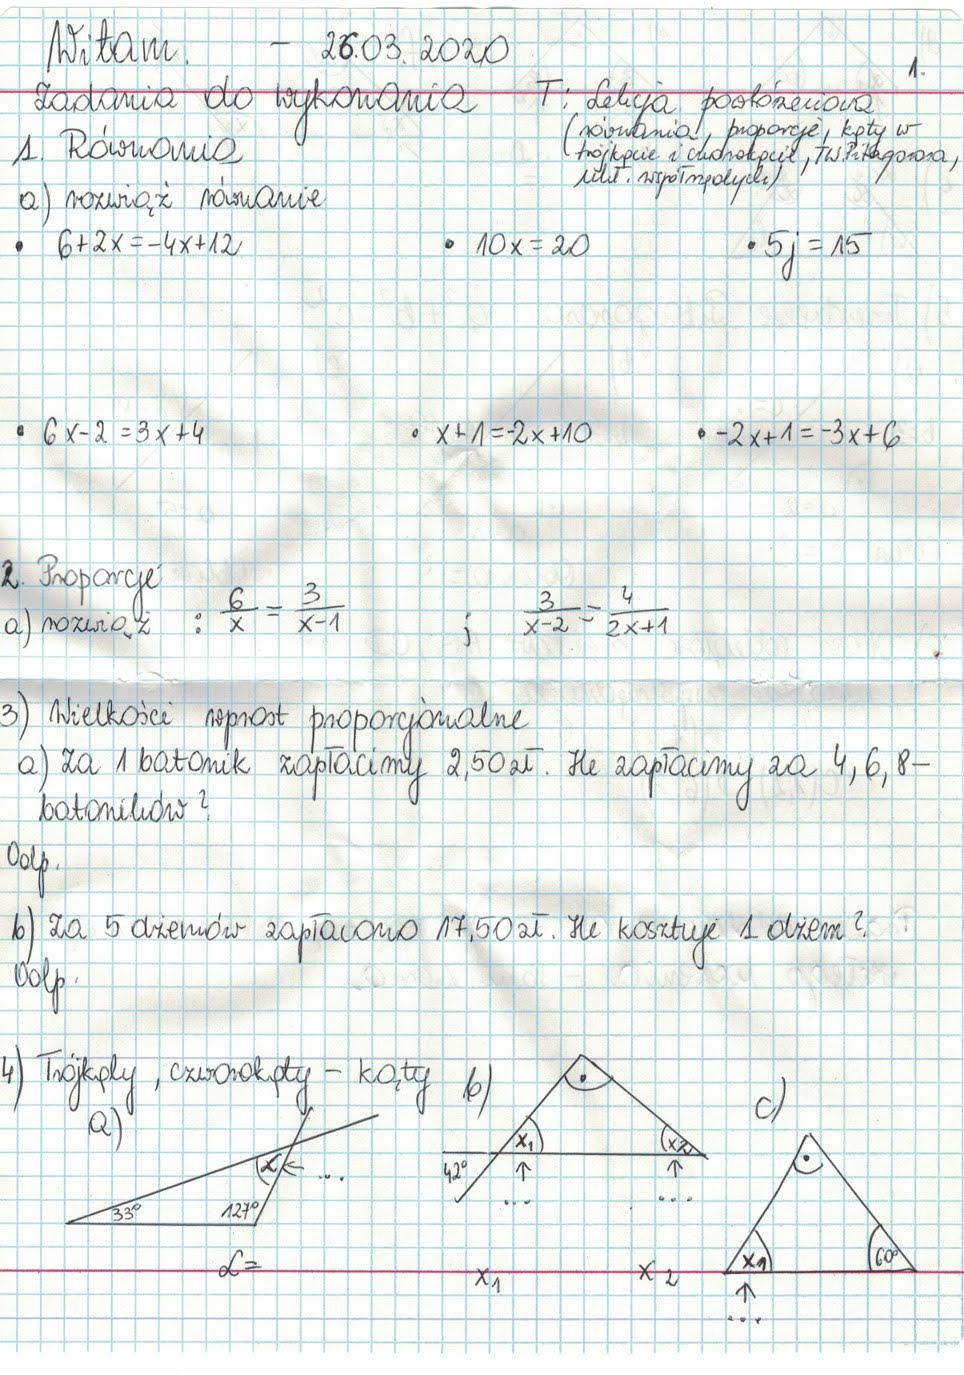 Witam. - 26.03.2020
1.
Zadania do wykonania T: Lekcja powtórzeniowa
(równania, proporcje, kąty w
trójkącie i czworokącie, Tw. Pitagorasa,
ukł. współrzędych)
1. Równania
a) rozwiąż równanie
• 6+2x=-4x+12 • 10x=20 • 5j=15
• 6x-2=3x+4 • x+1=-2x+10 • -2x+1=-3x+6
2. Proporcje
a) rozwiąż : 6/x = 3/x-1 ; 3/x-2 = 4/2x+1
3) Wielkości wprost proporcjonalne
a) Za 1 batonik zapłacimy 2,50 zł. Ile zapłacimy za 4, 6, 8-
batoników?
Odp.
b) Za 5 dżemów zapłacono 17,50 zł. Ile kosztuje 1 dżem?
Odp.
4) Trójkąty, czworokąty - kąty
a)
33° 127° α ← ...
α=
b)
42° x₁ x₂
↑ ↑
... ...
x₁ x₂
c)
x₁ 60°
↑
...